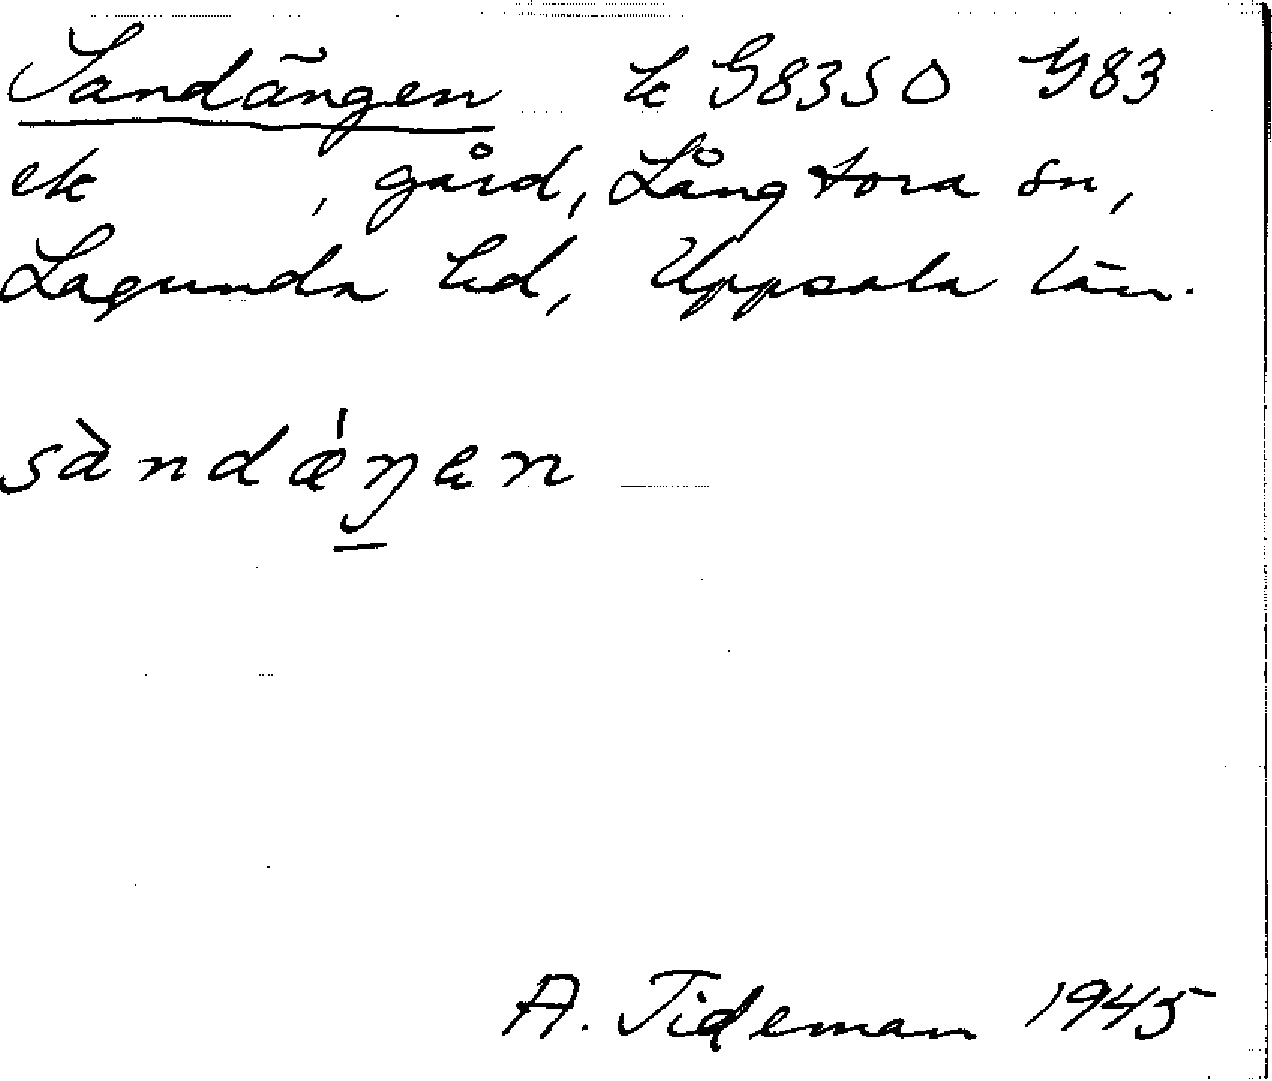 Sandängen k G83SO G83
ek , gård, Långtora sn,
Lagunda hd, Uppsala län.
sàndǽŋen
A. Tideman 1945